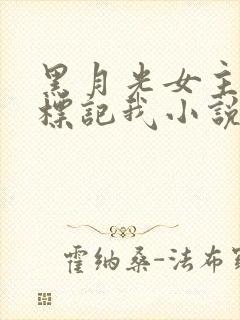 黑月光女主
標記我小說
霍纳桑-法布